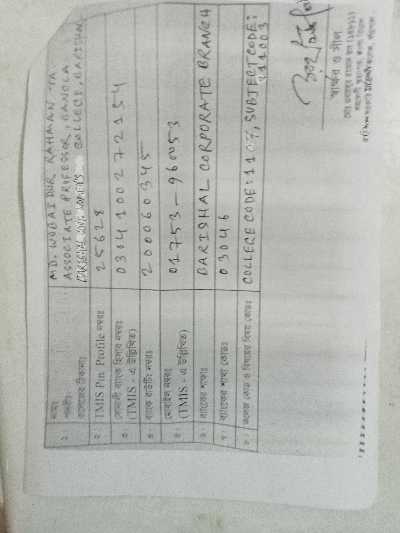 ১. নামঃ MD. WOBAIDUR RAHMAN
পদবীঃ ASSOCIATE PROFESSOR, BANGLA
কলেজের ঠিকানাঃ BARISHAL GOVT. WOMEN'S COLLEGE, BARISHAL
২. TMIS Pin Profile নম্বরঃ 25628
৩. সোনালী ব্যাংক হিসাব নম্বরঃ 0304100272154
(TMIS - এ উল্লিখিত)
৪. ব্যাংক রাউটিং নম্বরঃ 200060345
৫. মোবাইল নম্বরঃ 01753-960053
(TMIS - এ উল্লিখিত)
৬. ব্যাংকের শাখাঃ BARISHAL CORPORATE BRANCH
৭. ব্যাংকের শাখা কোডঃ 03046
৮. কলেজ কোড ও বিষয়ের বিষয় কোডঃ COLLEGE CODE: 1107, SUBJECT CODE:
211003
স্বাক্ষর ও সীল